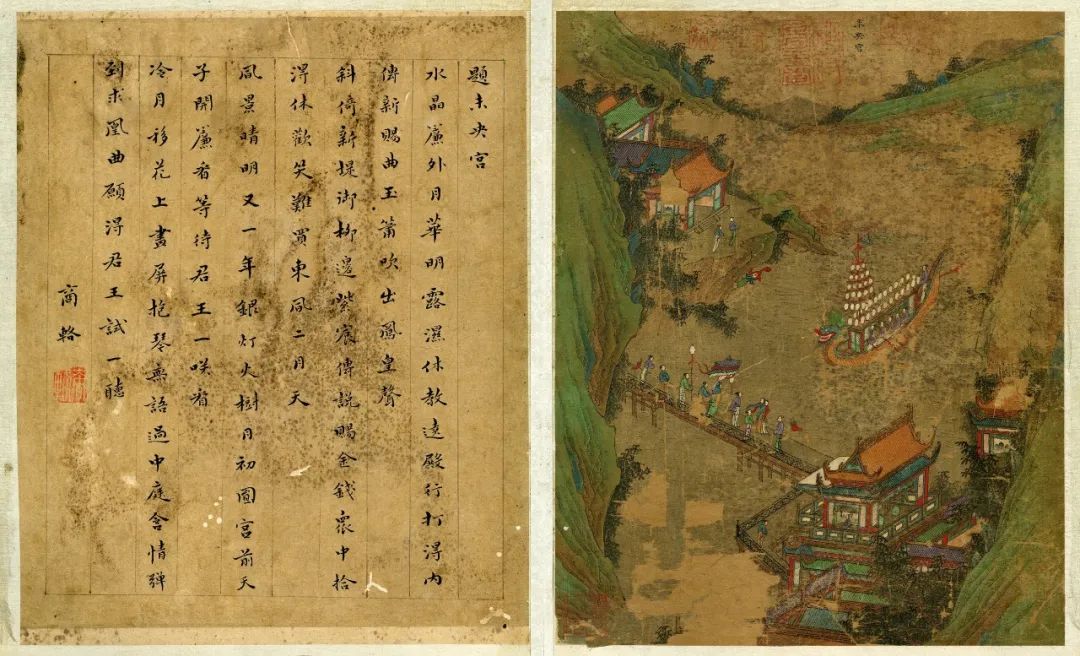 題未央宫
水晶簾外月華明露濕休教遠殿行打淂内
傳新賜曲玉簫吹出鳳皇聲
斜倚新堤御柳邊紫宸傳説賜金錢衆中拾
淂休歡笑難買東風二月天
風景晴明又一年銀灯火樹月初圓宫前天
子開簾看等待君王一咲看
冷月移花上畫屏抱琴無語過中庭含情弹
到求凰曲願淂君王試一聽
商輅
未央宫